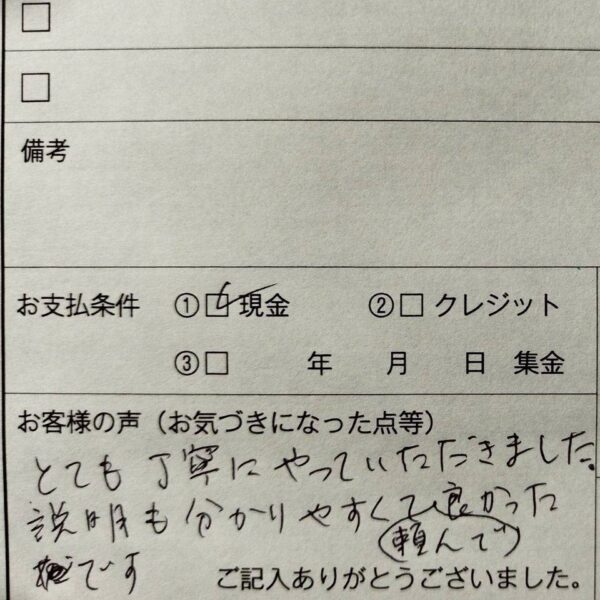 □
□
備考
お支払条件 ①□現金 ②□クレジット
③□ 年 月 日 集金
お客様の声（お気づきになった点等）
とても丁寧にやっていただきました。
説明も分かりやすくて良かった
頼んで
です
ご記入ありがとうございました。